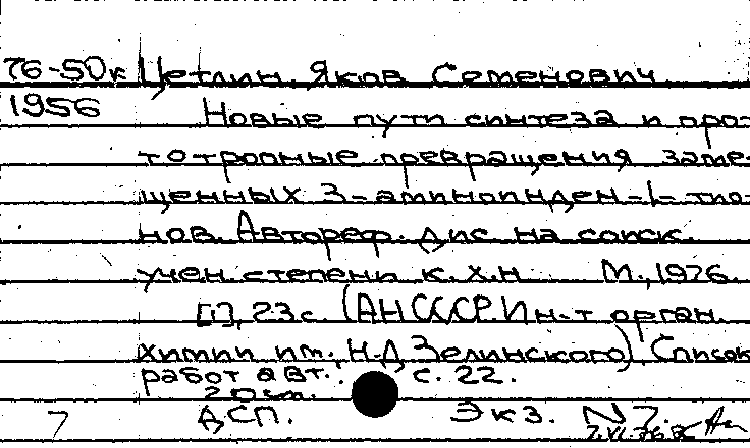 76-50к Цетлин, Яков Семенович
1956 Новые пути синтеза и про-
тотропные превращения заме-
щенных 3-аминоинден-1-тио-
нов. Автореф. дис. на соиск.
учен. степени к.х.н М., 1976.
[1], 23 с. (АН СССР. Ин-т орган.
химии им. Н.Д. Зелинского) Список
работ авт.: с. 22.
20 см.
7 ДСП. Экз. N7